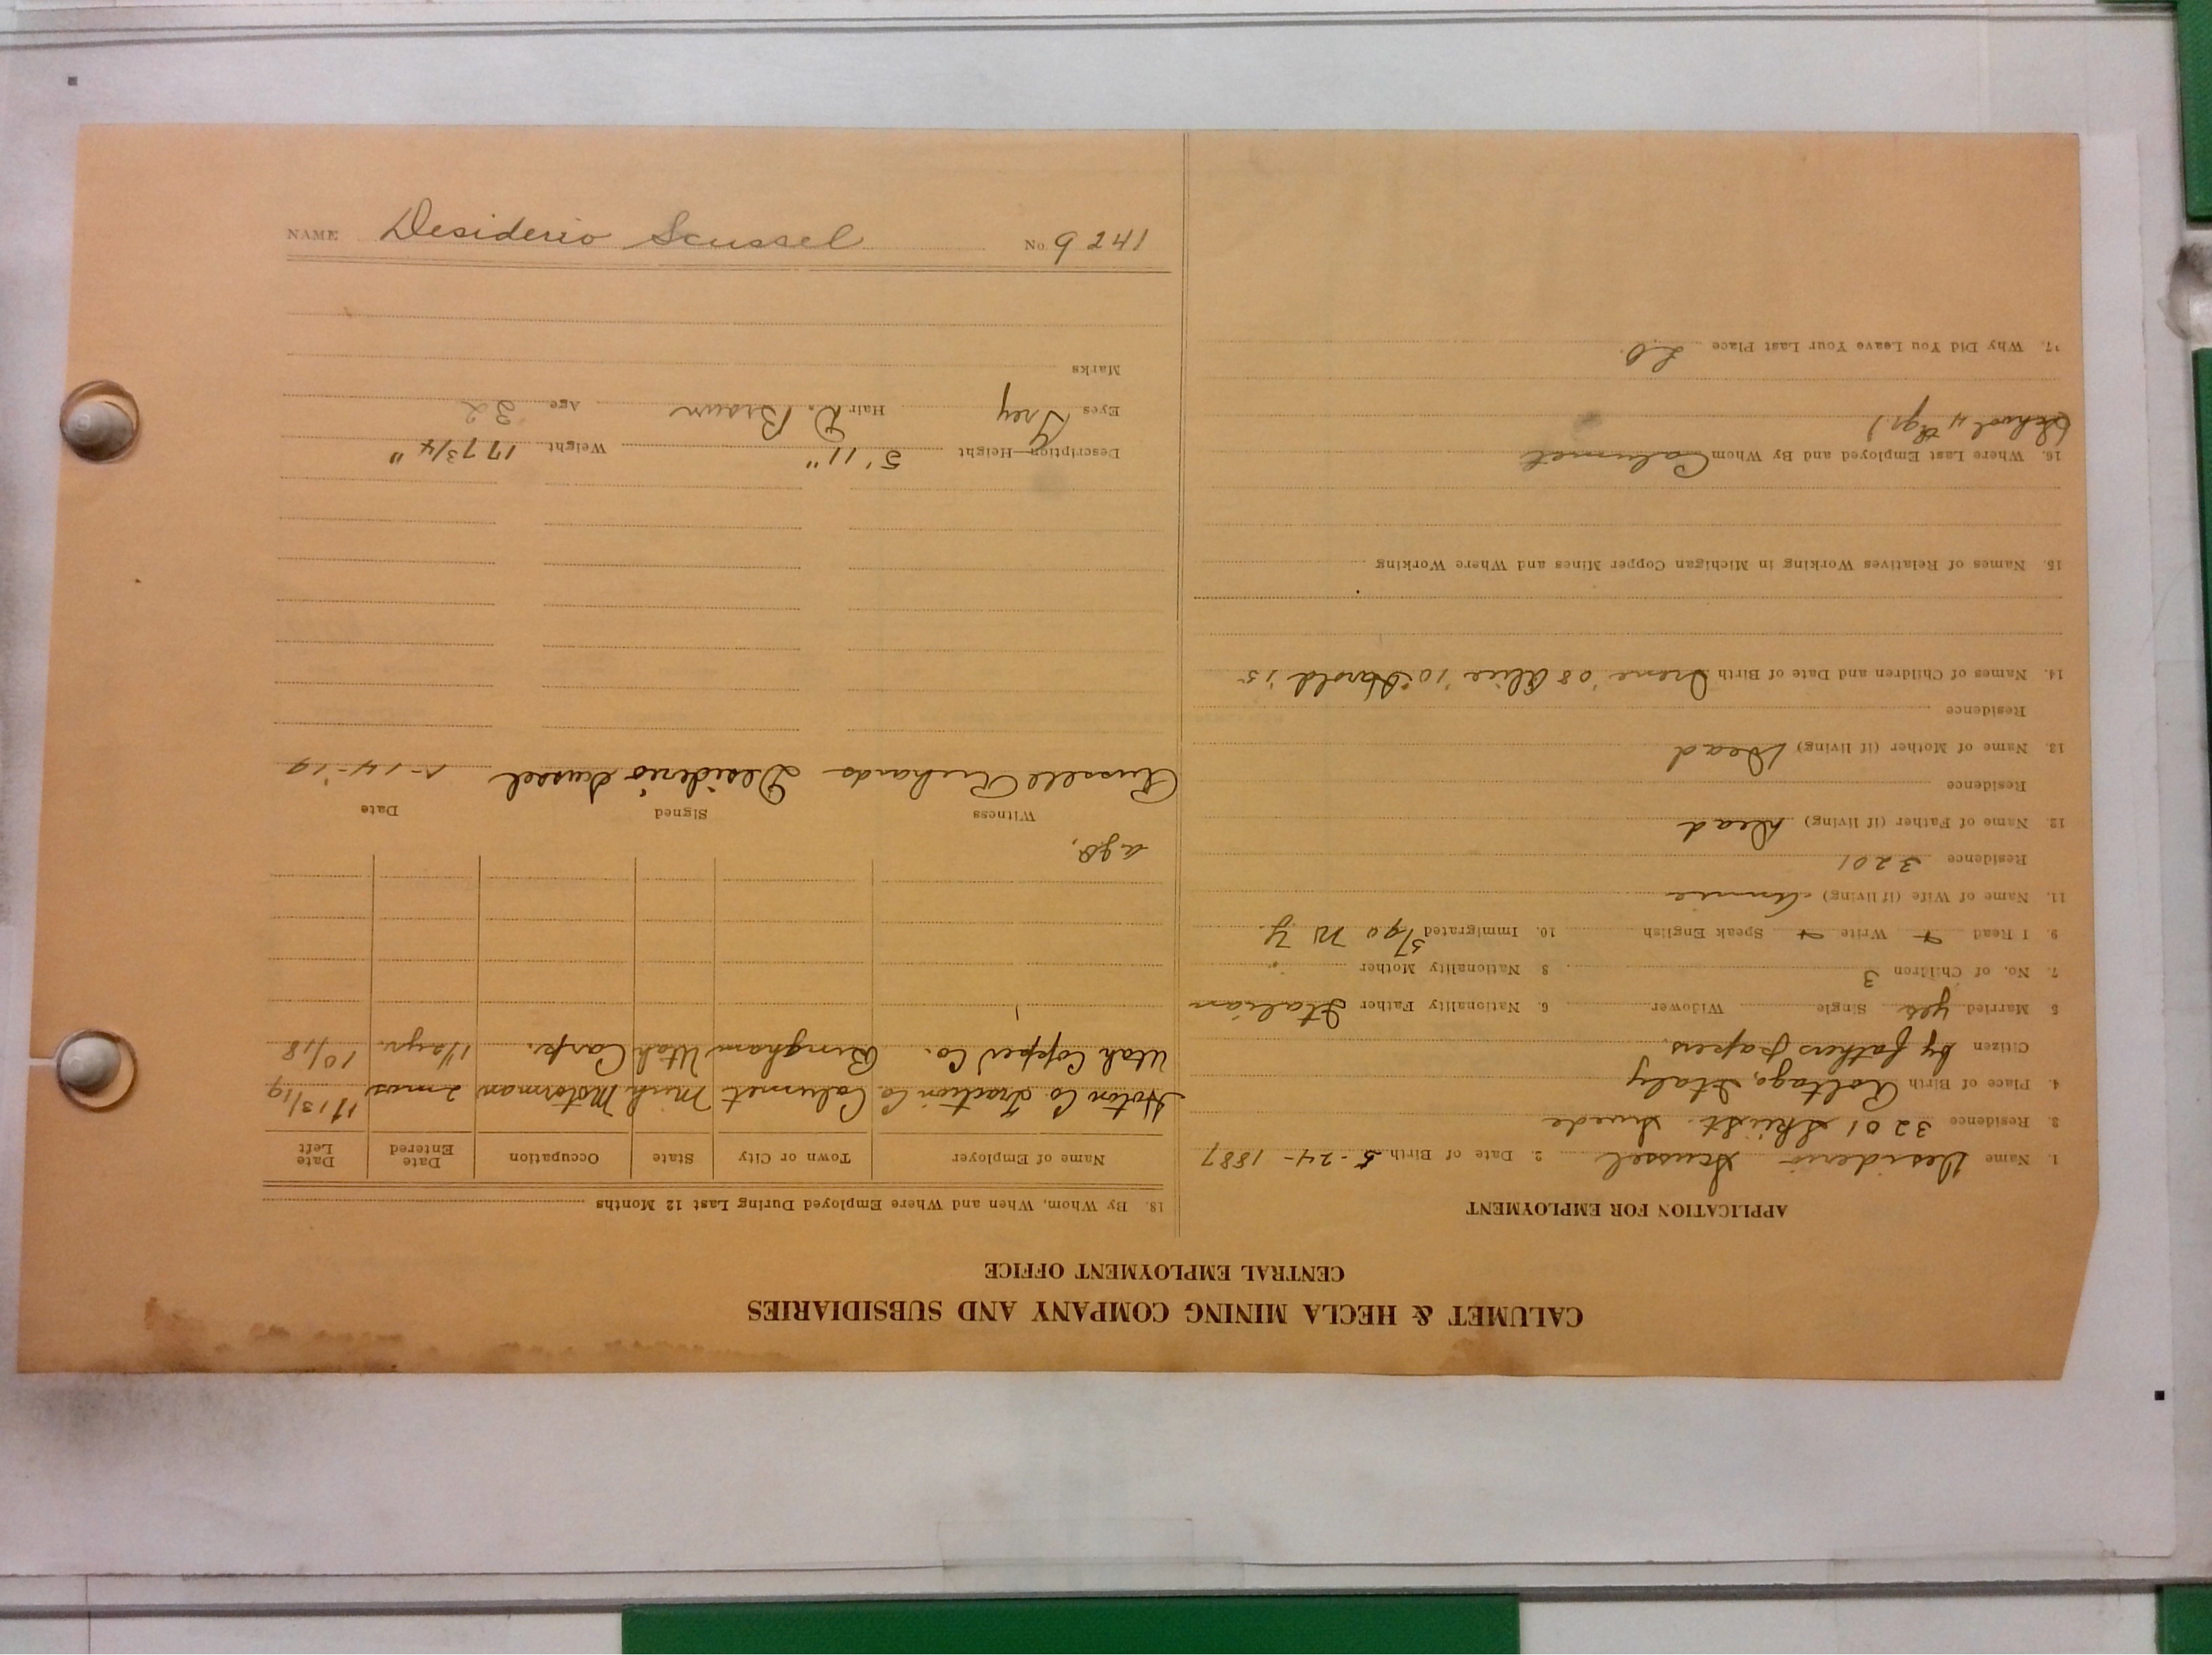 CALUMET & HECLA MINING COMPANY AND SUBSIDIARIES
CENTRAL EMPLOYMENT OFFICE
APPLICATION FOR EMPLOYMENT
1. Name Desiderio Scussel 2. Date of Birth 5-24-1887
3. Residence 3201 St. Swede
4. Place of Birth Italy
Citizen by fathers papers.
5 Married yes Single Widower 6. Nationality Father Italian
7. No. of Children 3 8 Nationality Mother "
9. I Read + Write + Speak English 10. Immigrated 3/90 N Y.
11. Name of Wife (if living) Annie
Residence 3201
12. Name of Father (if living) Dead
Residence
13. Name of Mother (if living) Dead
Residence
14. Names of Children and Date of Birth Irene '08 Alice '10 Harold '15
15. Names of Relatives Working in Michigan Copper Mines and Where Working
16. Where Last Employed and By Whom Calumet
(School 4 gr.)
17. Why Did You Leave Your Last Place
18. By Whom, When and Where Employed During Last 12 Months
Name of Employer Town or City State Occupation Date Entered Date Left
Hoton Co. Traction Co Calumet Mich Motorman 2 mos 11/13/19
Utah Copper Co. Bingham Utah Carp. 10/18
ago,
Witness Signed Date
Russell Richards Desiderio Scussel 1-14-'19
Description—Height 5' 11" Weight 177 3/4 "
Eyes Grey Hair D. Brown Age 32
Marks
NAME Desiderio Scussel No. 9241